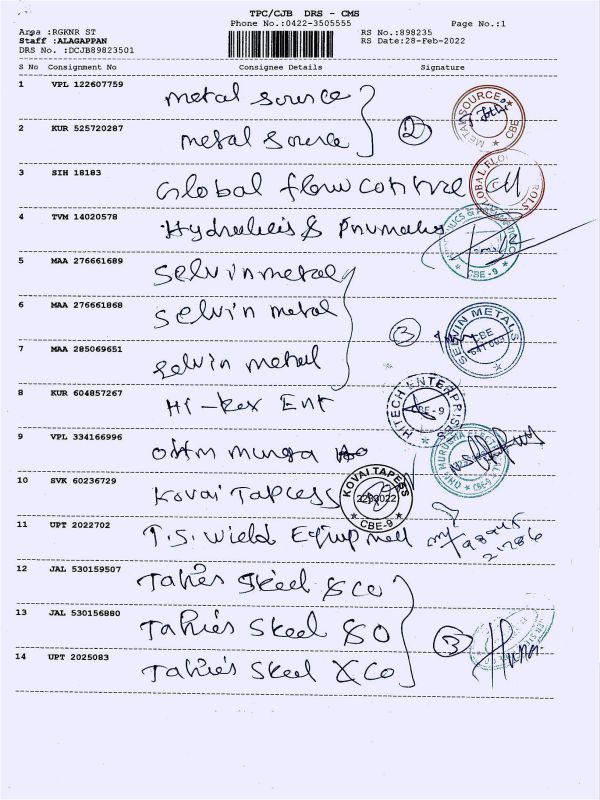 TPC/CJB DRS - CMS
Phone No.:0422-3505555 Page No.:1
Area :RGKNR ST RS No.:898235
Staff :ALAGAPPAN RS Date:28-Feb-2022
DRS No. :DCJB89823501
S No Consignment No Consignee Details Signature
1 VPL 122607759 metal source
2 KUR 525720287 metal source 2
METAL SOURCE CBE
3 SIH 18183 Global flow control
4 TVM 14020578 Hydraulics & Pnumatics
CBE-9
5 MAA 276661689 Selvin metal
6 MAA 276661868 Selvin metal 3
SELVIN METALS CBE
7 MAA 285069651 Selvin metal
8 KUR 604857267 Hi-Rex Ent
HITECH ENTERPRISES CBE-9
9 VPL 334166996 ohm muruga
OHM MURUGHA ELECTRICAL CBE-9
10 SVK 60236729 Kovai Tapess
KOVAI TAPERS CBE-9
11 UPT 2022702 T.S. Wield Equpmell
12 JAL 530159507 Tahies Skeel & co
13 JAL 530156880 Tahies Skeel & O 3
14 UPT 2025083 Tahies Skeel & Co